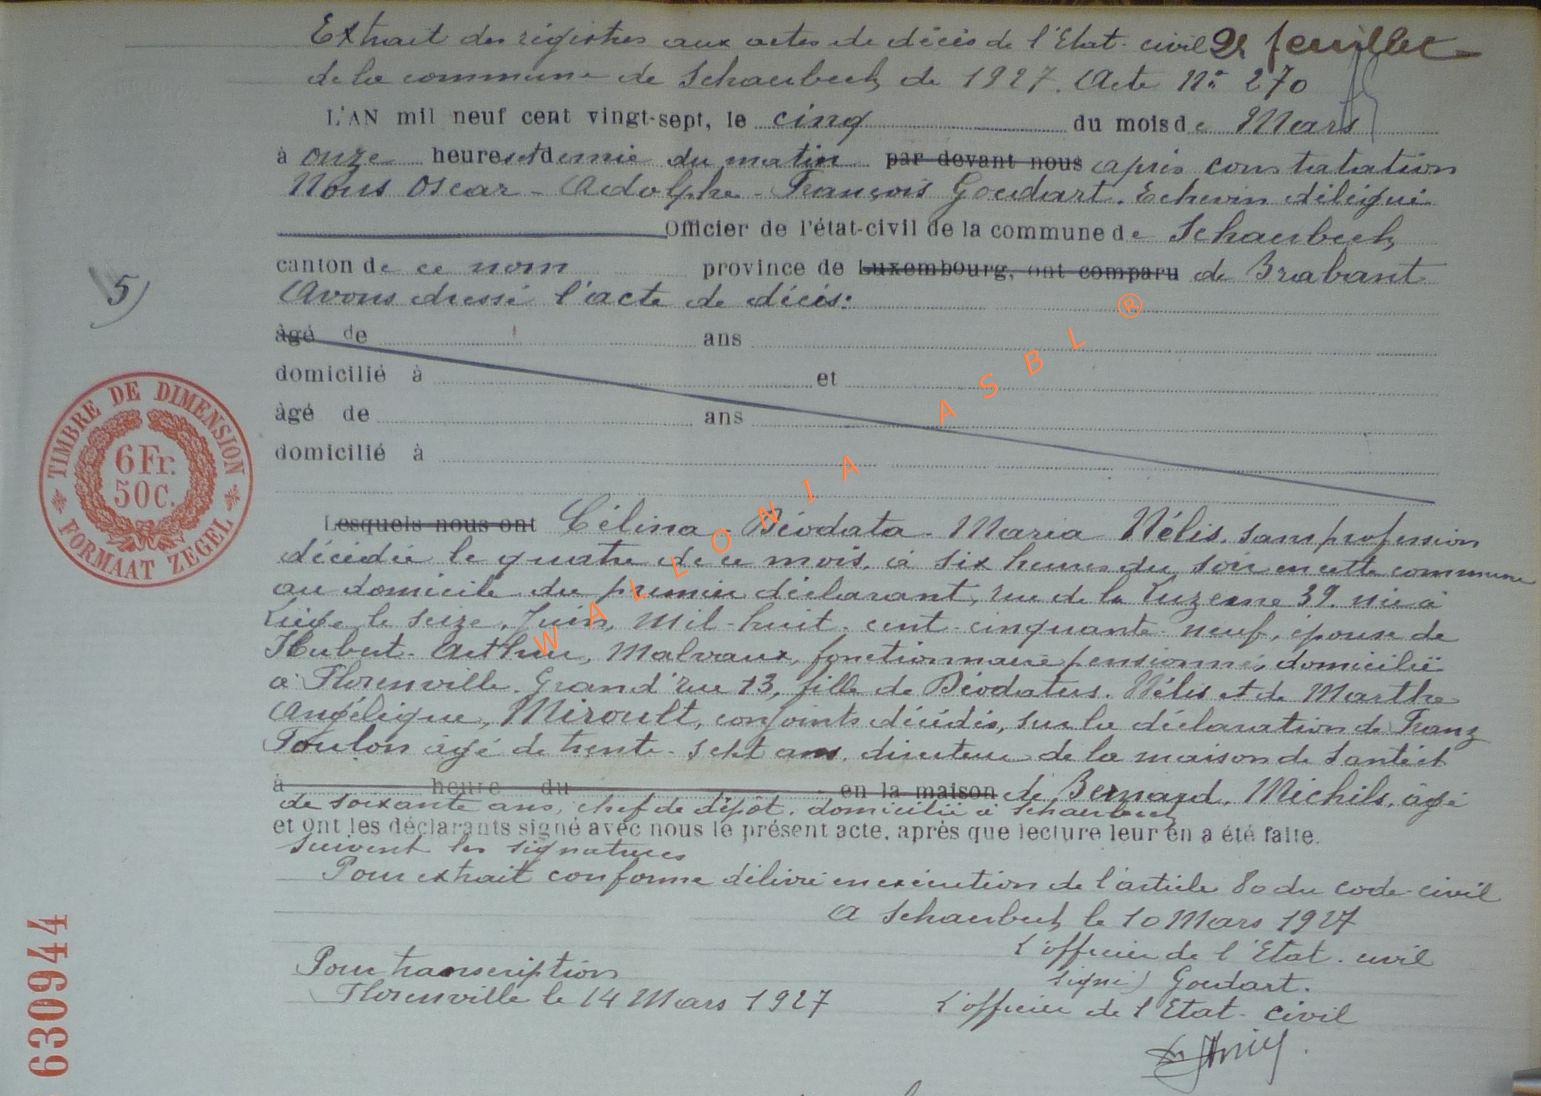 Extrait des registres aux actes de décès de l'Etat-civil 2e feuillet
de la commune de Schaerbeek de 1927. Acte No 270
L'AN mil neuf cent vingt-sept, le cinq du mois de Mars
à onze heures et demie du matin par devant nous après constatation
Nous Oscar-Adolphe-François Goedart. Echevin délégué
Officier de l'état-civil de la commune de Schaerbeek
canton de ce nom province de Luxembourg, ont comparu de Brabant
5) Avons dressé l'acte de décès:
âgé de ans
domicilié à et
âgé de ans
domicilié à
TIMBRE DE DIMENSION
6 Fr.
50 C.
FORMAAT ZEGEL
Lesquels nous ont Célina-Déodata-Maria Nélis, sans profession
décédée le quatre de ce mois, à six heures du soir en cette commune
au domicile du premier déclarant, rue de la Luzerne 39. née à
Liège le seize Juin, Mil-huit-cent-cinquante-neuf, épouse de
Hubert-Arthur, Malvaux, fonctionnaire pensionné, domicilié
à Florenville. Grand'rue 13, fille de Déodatus. Nélis et de Marthe
Angélique, Miroult, conjoints décédés, sur la déclaration de Franz
Toulon âgé de trente-sept ans, directeur de la maison de santé et
à heure du en la maison de Bernard. Michils, âgé
de soixante ans, chef de dépôt, domicilié à Schaerbeek
et ont les déclarants signé avec nous le présent acte, après que lecture leur en a été faite.
suivent les signatures
Pour extrait conforme délivré en exécution de l'article 80 du code-civil
A Schaerbeek le 10 Mars 1927
L'officier de l'Etat-civil
signé) Goedart.
Pour transcription
Florenville le 14 Mars 1927
L'officier de l'Etat-civil
630944
WALLONIA ASBL ®